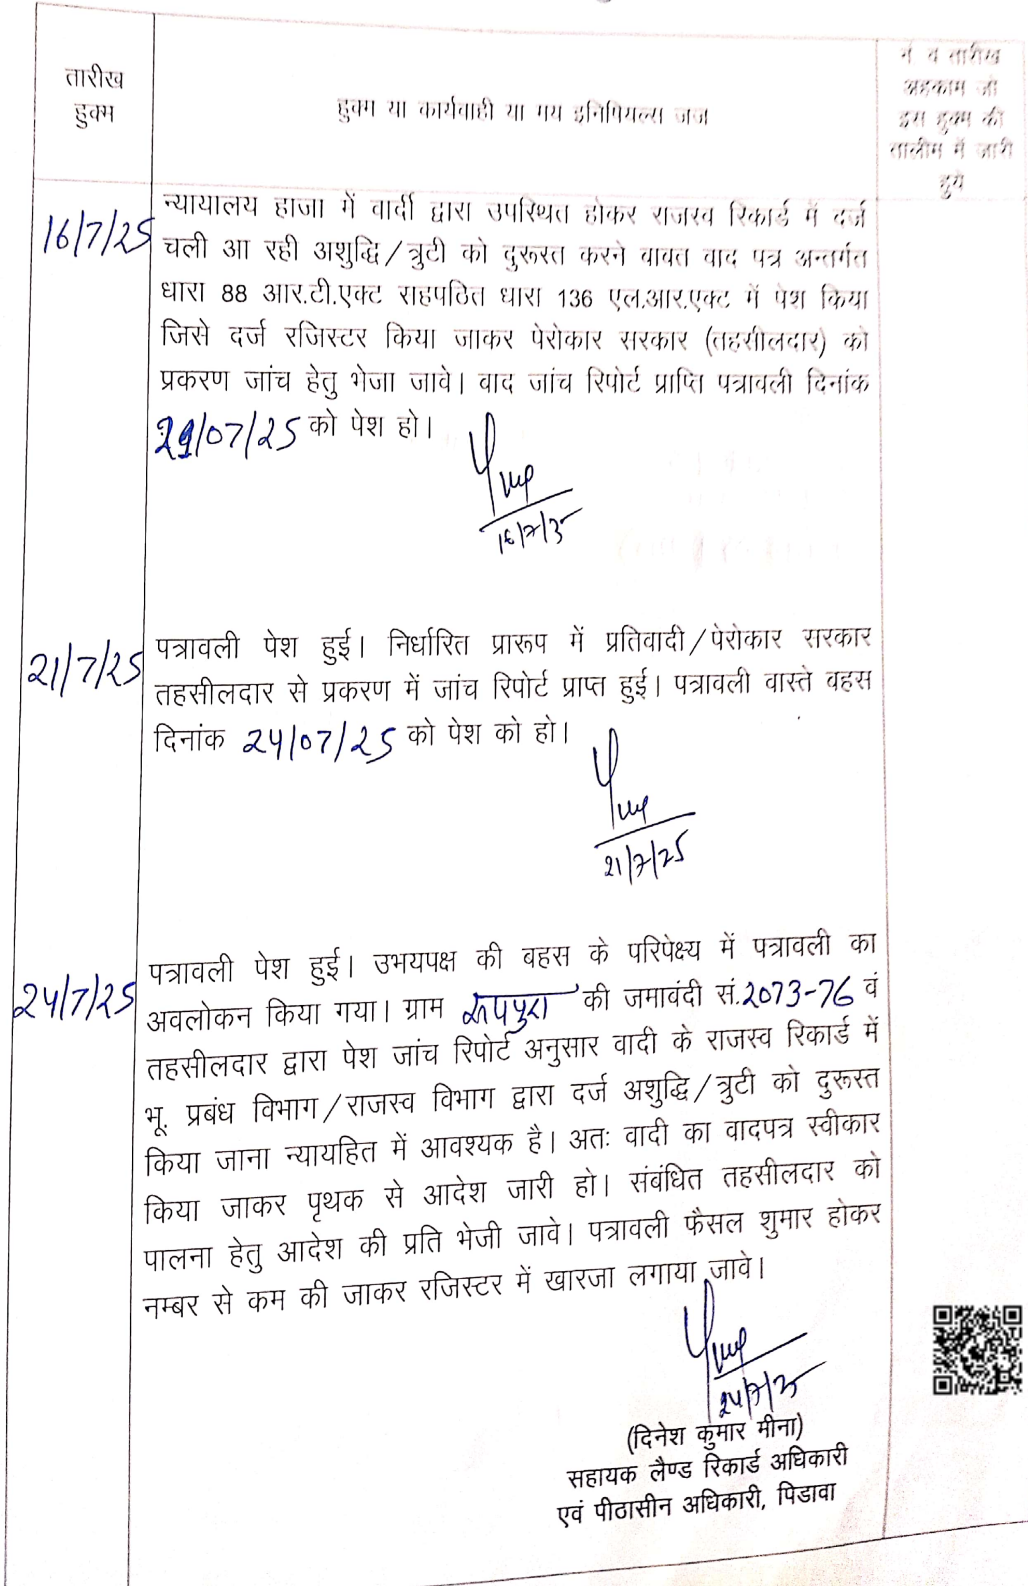 तारीख
हुक्म
हुक्म या कार्यवाही या मय इनिषियल्स जज
नं व तारीख
अहकाम जो
इस हुक्म की
तालीम में जारी
हुये
16/7/25
न्यायालय हाजा में वार्दी द्वारा उपस्थित होकर राजस्व रिकार्ड में दर्ज
चली आ रही अशुद्धि/त्रुटी को दुरूस्त करने बाबत वाद पत्र अन्तर्गत
धारा 88 आर.टी.एक्ट सहपठित धारा 136 एल.आर.एक्ट में पेश किया
जिसे दर्ज रजिस्टर किया जाकर पेरोकार सरकार (तहसीलदार) को
प्रकरण जांच हेतु भेजा जावे। वाद जांच रिपोर्ट प्राप्ति पत्रावली दिनांक
21/07/25 को पेश हो।
16/7/25
21/7/25
पत्रावली पेश हुई। निर्धारित प्रारूप में प्रतिवादी/पेरोकार सरकार
तहसीलदार से प्रकरण में जांच रिपोर्ट प्राप्त हुई। पत्रावली वास्ते वहस
दिनांक 24/07/25 को पेश को हो।
21/7/25
24/7/25
पत्रावली पेश हुई। उभयपक्ष की बहस के परिपेक्ष्य में पत्रावली का
अवलोकन किया गया। ग्राम रूपपुरा की जमावंदी सं.2073-76 वं
तहसीलदार द्वारा पेश जांच रिपोर्ट अनुसार वादी के राजस्व रिकार्ड में
भू. प्रबंध विभाग/राजस्व विभाग द्वारा दर्ज अशुद्धि/त्रुटी को दुरूस्त
किया जाना न्यायहित में आवश्यक है। अतः वादी का वादपत्र स्वीकार
किया जाकर पृथक से आदेश जारी हो। संबंधित तहसीलदार को
पालना हेतु आदेश की प्रति भेजी जावे। पत्रावली फैसल शुमार होकर
नम्बर से कम की जाकर रजिस्टर में खारजा लगाया जावे।
24/7/25
(दिनेश कुमार मीना)
सहायक लैण्ड रिकार्ड अधिकारी
एवं पीठासीन अधिकारी, पिडावा